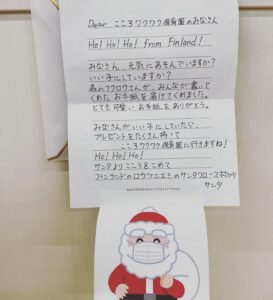 Dear こころワクワク保育園のみなさん
Ho! Ho! Ho! from Finland!
みなさん、元気にあそんでいますか?
いい子にしていますか?
森のフクロウさんが、みんなが書いて
くれたお手紙を届けてくれました。
とても可愛いお手紙をありがとう。
みなさんがいい子にしていたら、
プレゼントをたくさん持って
こころワクワク保育園に行きますね!
Ho! Ho! Ho!
サンタより こころをこめて
フィンランドのロヴァニエミのサンタクロース村から
サンタ